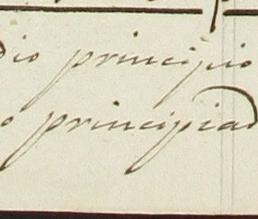 dio principio
o principiad